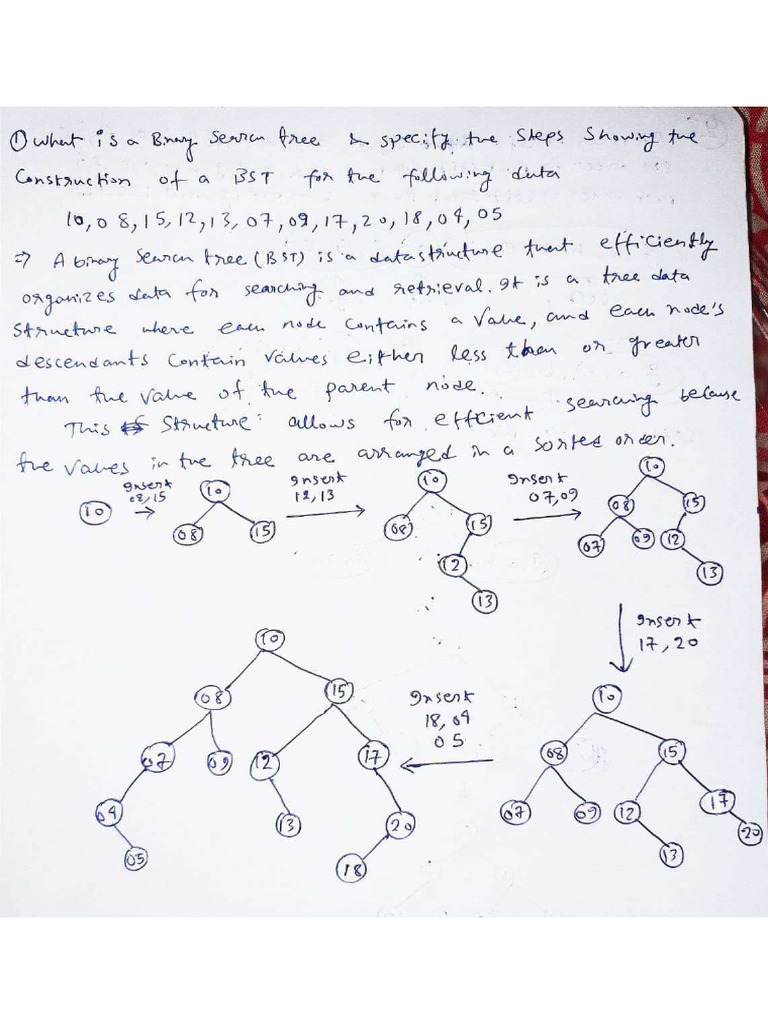 ① What is a Binary Search tree & specify the steps showing the
Construction of a BST for the following data
10, 08, 15, 12, 13, 07, 09, 17, 20, 18, 04, 05
⇒ A binary search tree (BST) is a data structure that efficiently
organizes data for searching and retrieval. It is a tree data
structure where each node contains a value, and each node's
descendants contain values either less than or greater
than the value of the parent node.
This structure: allows for efficient searching because
the values in the tree are arranged in a sorted order.
10
Insert
08, 15
10
08 15
Insert
12, 13
10
08 15
12
13
Insert
07, 09
10
08 15
07 09 12
13
Insert
17, 20
10
08 15
07 09 12 17
13 20
Insert
18, 04
05
10
08 15
07 09 12 17
04 13 20
05 18